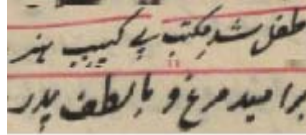 طفل شد مکتب پی کسب هنر
بر امید مرغ و با لطف پدر